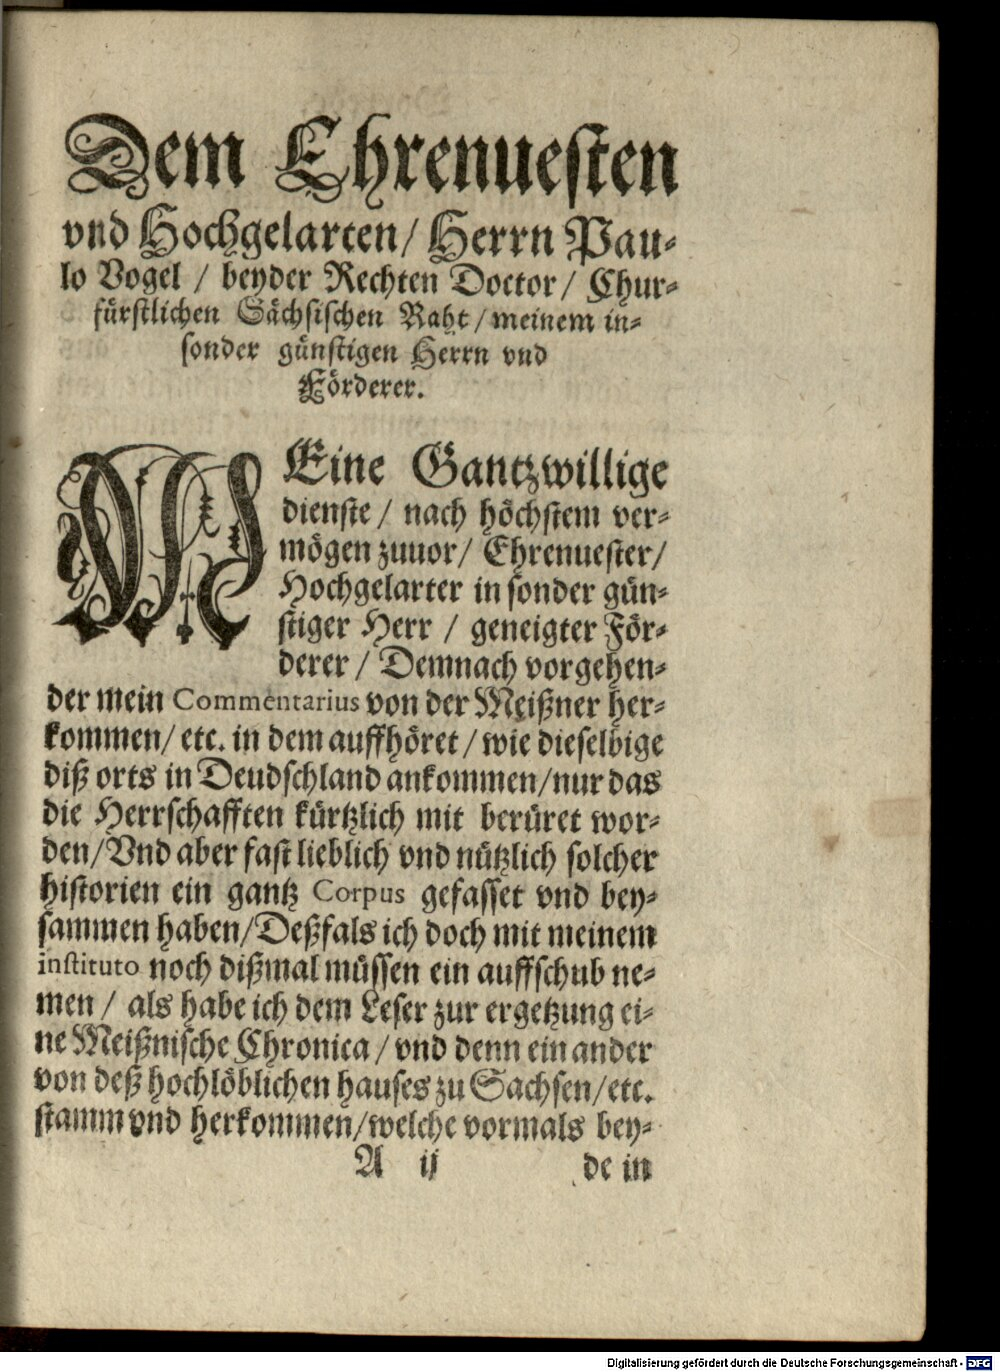 Dem Ehrenuesten
vnd Hochgelarten/ Herrn Pau-
lo Vogel / beyder Rechten Doctor/ Chur-
fürstlichen Sächsischen Raht/meinem in-
sonder günstigen Herrn vnd
Förderer.
MEine Gantzwillige
dienste / nach höchstem ver-
mögen zuuor/ Ehrenuester/
Hochgelarter in sonder gün-
stiger Herr / geneigter För-
derer / Demnach vorgehen-
der mein Commentarius von der Meißner her-
kommen/ etc. in dem auffhöret/ wie dieselbige
diß orts in Deudschland ankommen/nur das
die Herrschafften kürtzlich mit berüret wor-
den/Vnd aber fast lieblich vnd nützlich solcher
historien ein gantz Corpus gefasset vnd bey-
sammen haben/Deßfals ich doch mit meinem
instituto noch dißmal müssen ein auffschub ne-
men / als habe ich dem Leser zur ergetzung ei-
ne Meißnische Chronica / vnd denn ein ander
von deß hochlöblichen hauses zu Sachsen/etc.
stamm vnd herkommen/welche vormals bey-
A ij de in
Digitalisierung gefördert durch die Deutsche Forschungsgemeinschaft - DFG